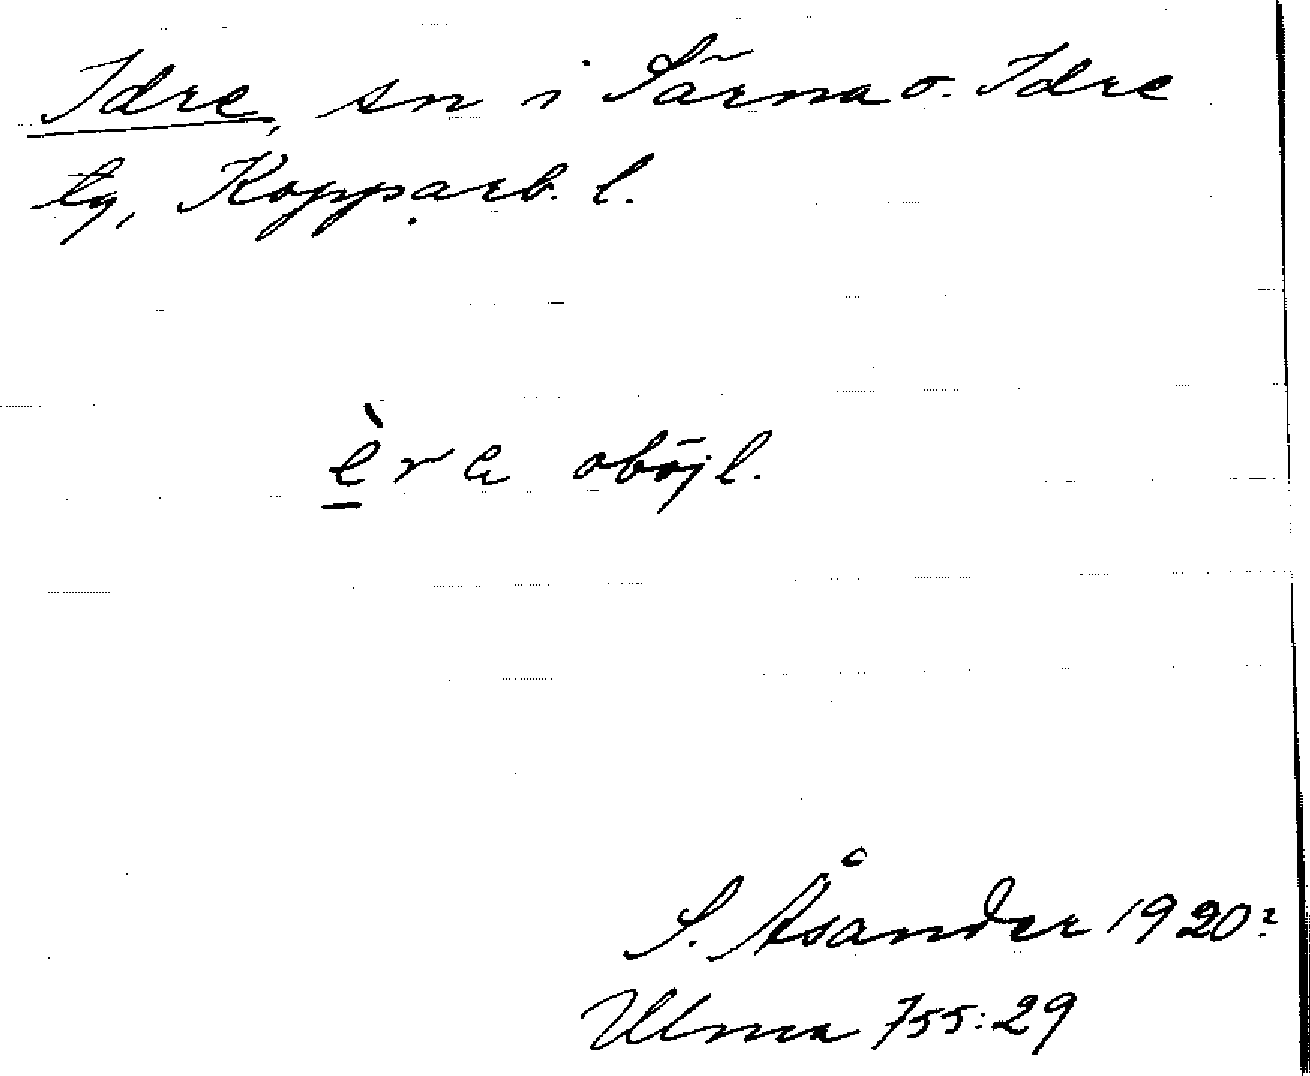 Idre, sn i Särna o. Idre
tg, Kopparb. l.
èra oböjl.
S. Åsander 1920?
Ulma 755:29